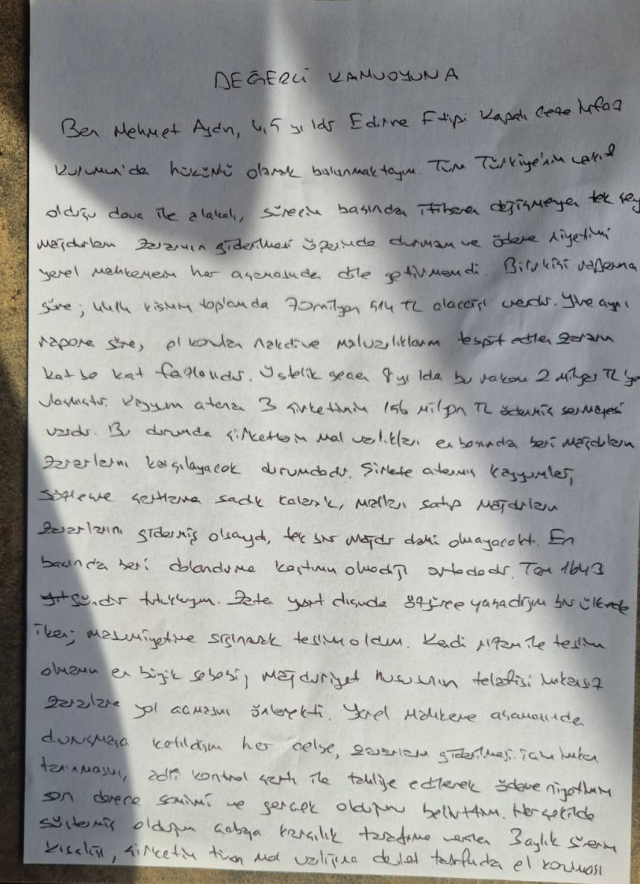 DEĞERLİ KAMUOYUNA
Ben Mehmet Aydın, 4,5 yıldır Edirne F tipi Kapalı Ceza İnfaz
Kurumun'da hükümlü olarak bulunmaktayım. Tüm Türkiye'nin vakıf
olduğu dava ile alakalı, sürecin başından itibaren değişmeyen tek şey
mağdurların zararının giderilmesi üzerinde durmam ve ödeme niyetimi
yerel mahkemenin her aşamasında dile getirmemdi. Bilirkişi raporuna
göre; üyelik kısmın toplamda 70 milyon TL alacağı vardır. Yine aynı
rapora göre, el konulan nakdi ve malvarlıkların tespit edilen zararın
kat be kat fazlasıdır. Üstelik geçen 8 yılda bu rakam 2 milyar TL'ye
ulaşmıştır. Kayyum atanan 3 şirketimin 156 milyon TL ödenmiş sermayesi
vardı. Bu durumda şirketlerin mal varlıkları en başında beri mağdurların
zararlarını karşılayacak durumdadır. Şirkete atanmış kayyumlar,
sözleşme şartlarına sadık kalarak, malları satıp mağdurların
zararlarını gidermiş olsaydı, tek bir mağdur dahi olmayacaktı. En
başında beri dolandırma kastımın olmadığı ortadadır. Tam 1643
gündür tutukluyum. Zaten yurt dışında özgürce yaşadığım bir ülkede
iken; masumiyetime sığınarak teslim oldum. Kendi rızam ile teslim
olmamın en büyük sebebi, mağduriyet hususunun telafisi imkansız
zararlara yol açmasını önlemekti. Yerel Mahkeme aşamasında
duruşmaya katıldığım her celse, zararların giderilmesi için imkan
tanınmasını, adli kontrol şartı ile tahliye edilerek ödeme niyetimin
son derece samimi ve gerçek olduğunu belirttim. Her şekilde
göstermiş olduğum çabaya karşılık tarafıma verilen 3 aylık sürenin
kısalığı, şirketin tüm mal varlığına devlet tarafından el konması